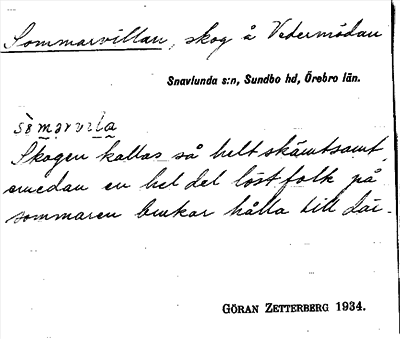 Sommarvillan, skog å Vedermödan
Snavlunda s:n, Sundbo hd, Örebro län.
sò̀mərvı̀la
Skogen kallas så helt skämtsamt,
emedan en hel del löst folk på
sommaren brukar hålla till där.
GÖRAN ZETTERBERG 1934.